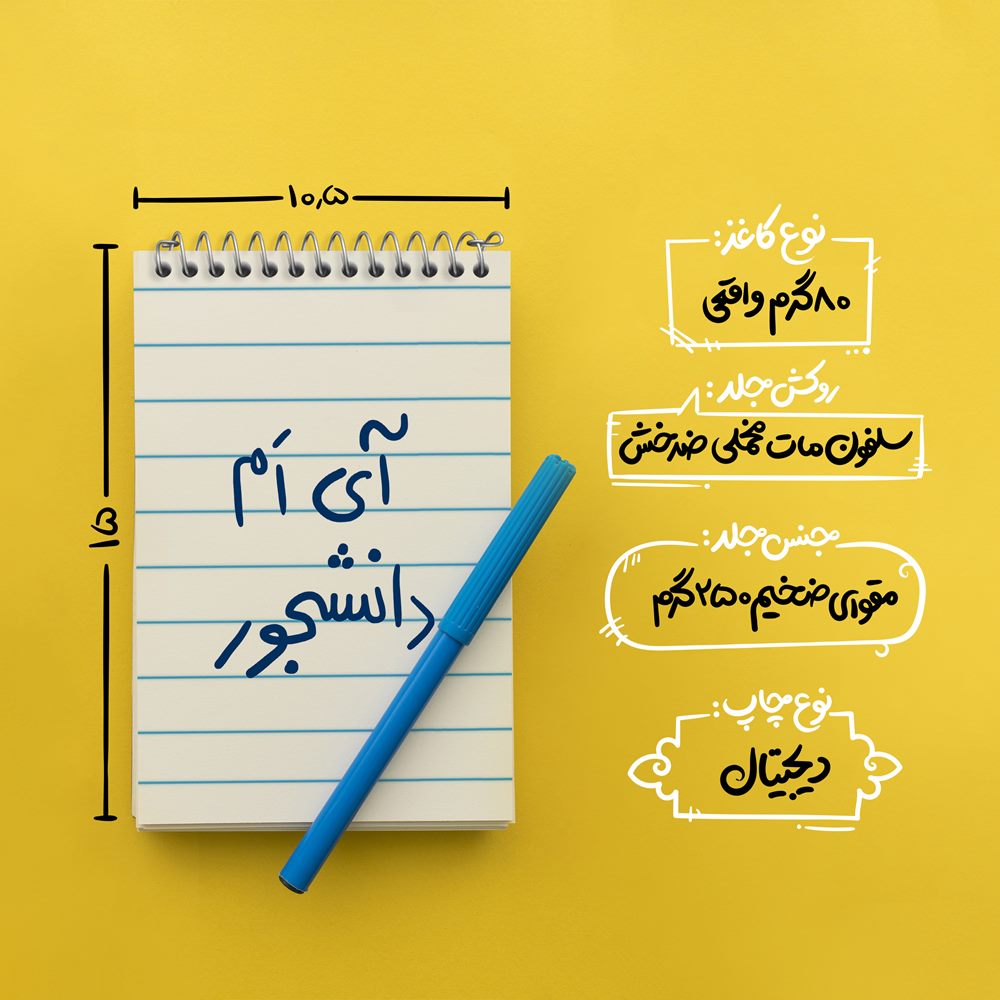 ۱۰,۵
۱۵
آی اَم
دانشجور
نوع کاغذ:
۸۰گرم واقعی
روکش جلد:
سلفون مات مخملی ضدخش
جنس جلد:
مقوای ضخیم ۲۵۰گرم
نوع چاپ:
دیجیتال